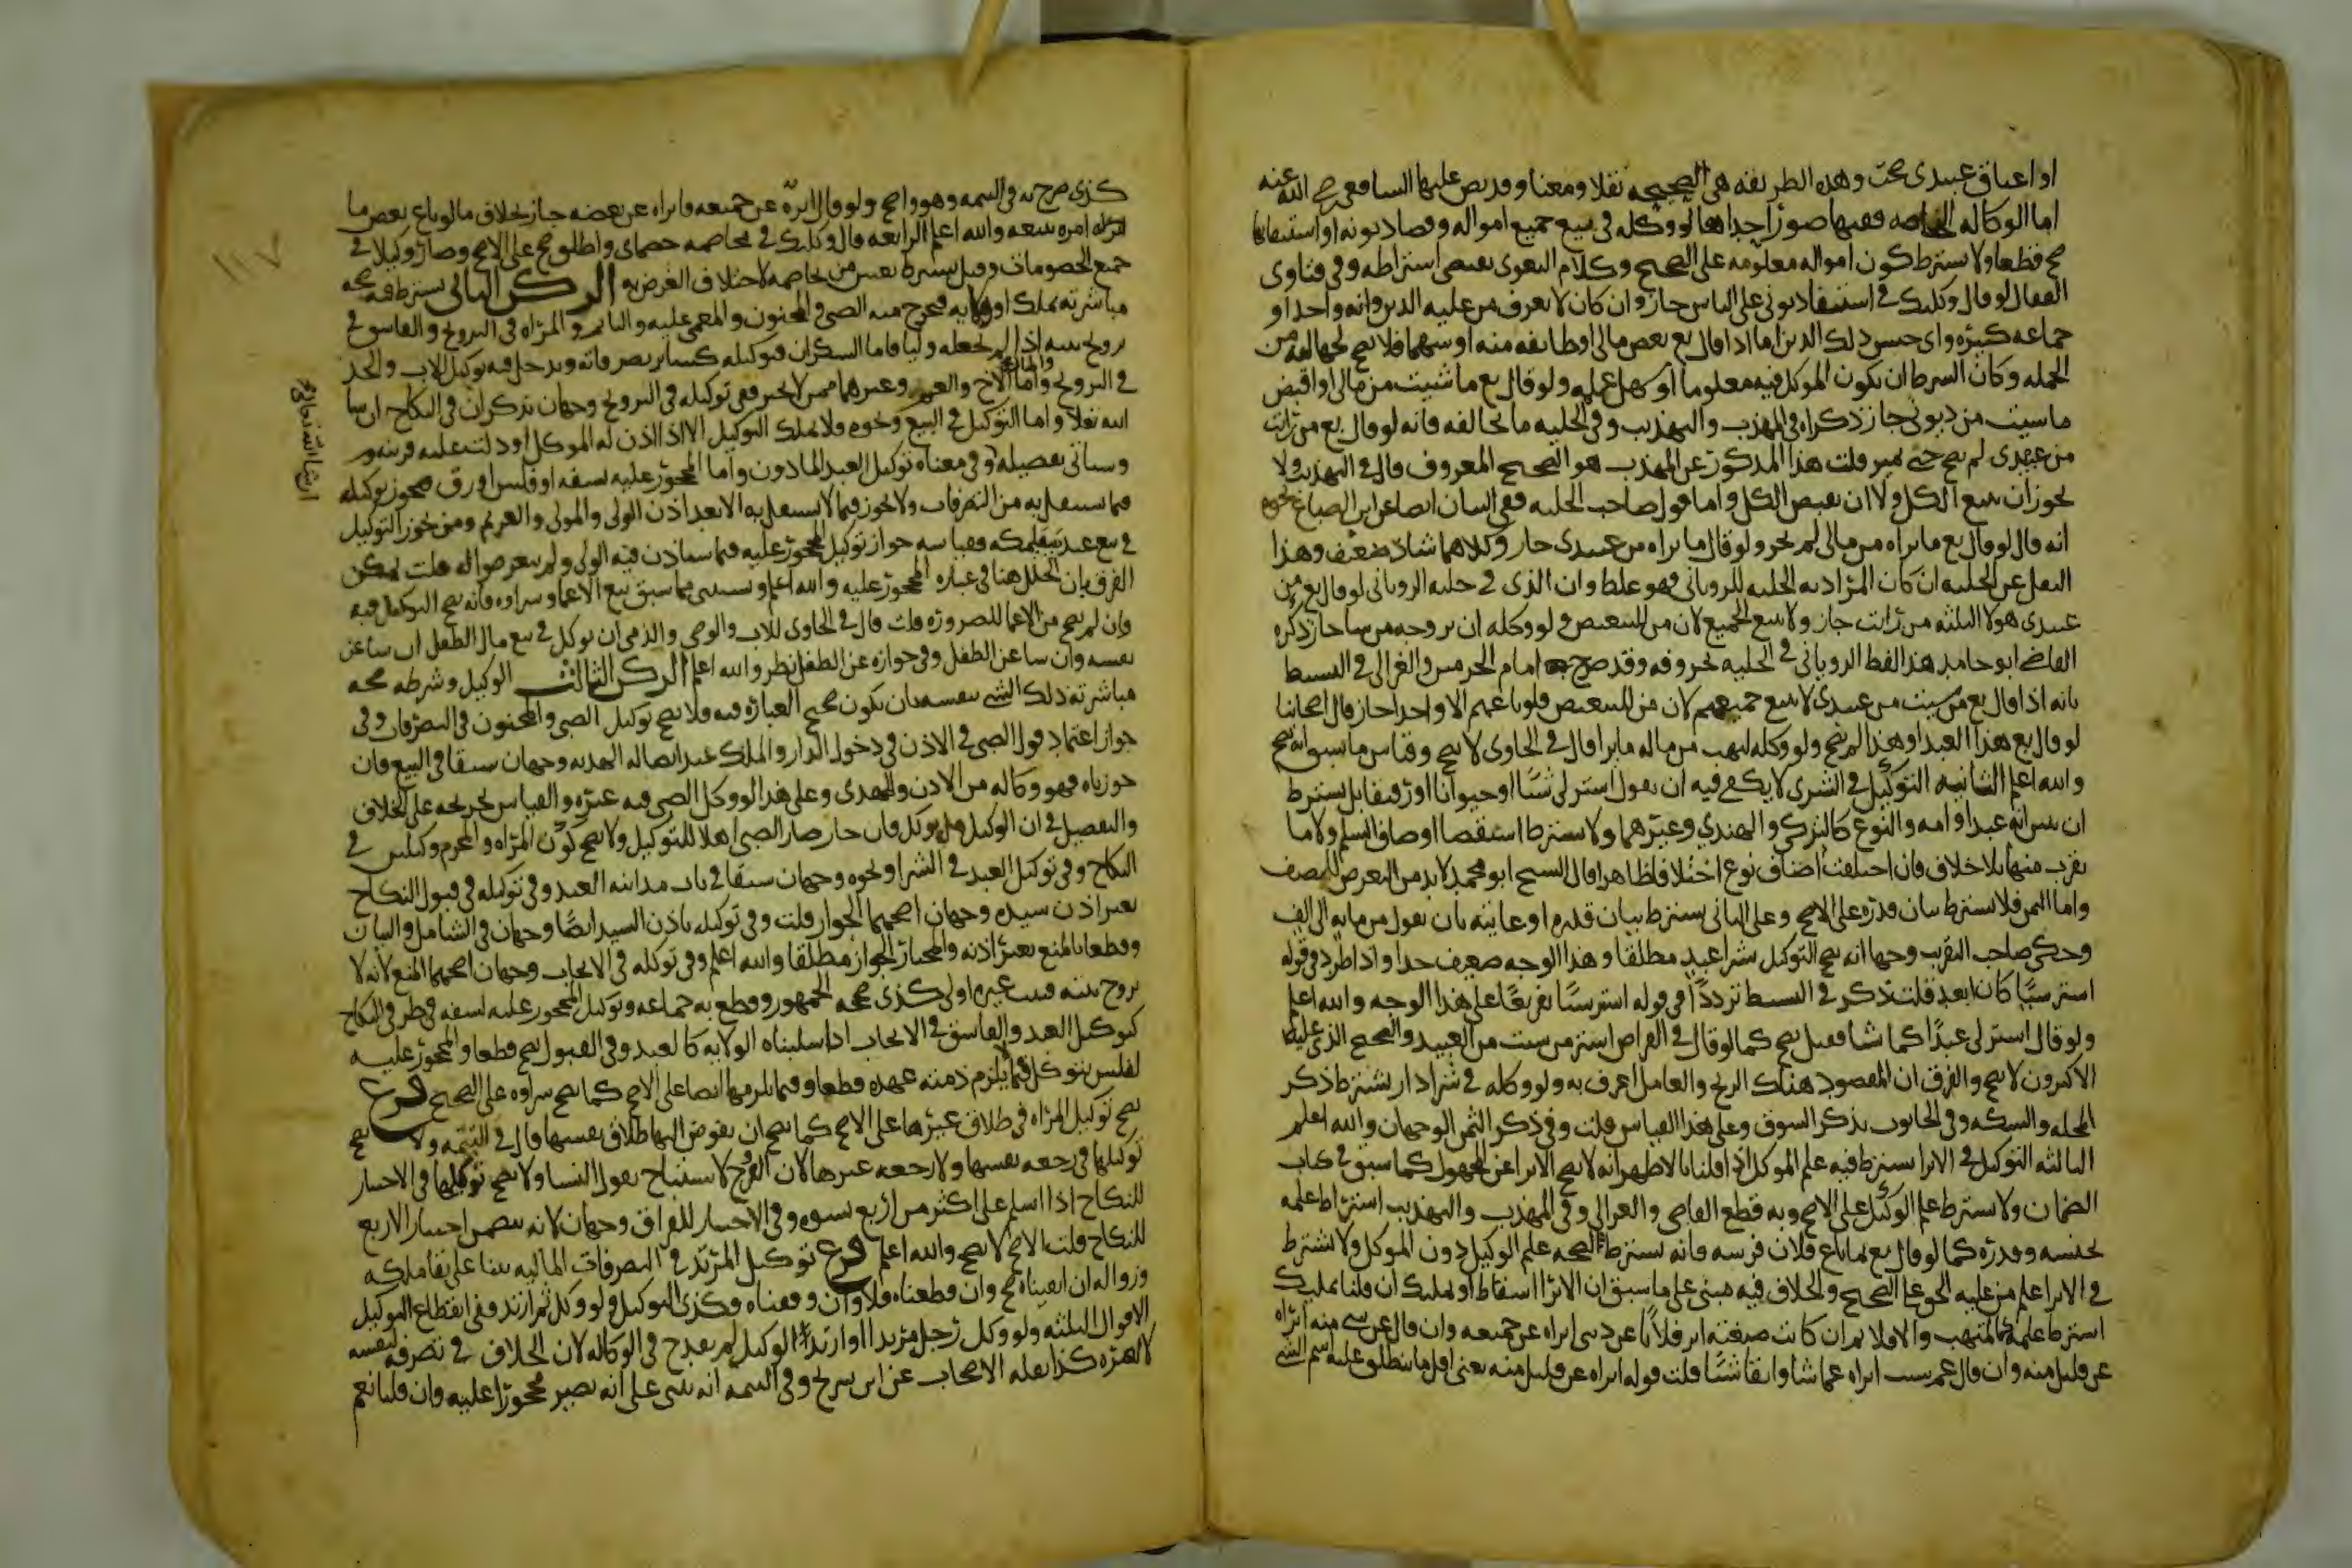 او اعتاق عبيدى صحت وهذه الطريقه هى الصحيحه نقلا ومعنا وقد نص عليها الشافعى رضى الله عنه
اما الوكاله الخاصه ففيها صور احداها لو وكله فى بيع جميع امواله وقضا ديونه او استيفايها
صح قطعا ولا يشترط كون امواله معلومه على الصحيح وكلام البغوى يقتضى اشتراطه وفى فتاوى
القفال لو قال وكلتك فى استيفا ديونى على الناس جاز وان كان لا يعرف من عليه الدين وانه واحد او
جماعه كثيره واى جنس ذلك الدين اما اذا قال بع بعض مالى او طايفه منه او سهما فلا يصح لجهالته من
الجمله وكان الشرط ان يكون الموكل فيه معلوما او يسهل علمه ولو قال بع ما شيت من مالى او اقبض
ما شيت من ديونى جاز ذكراه فى المهذب والتهذيب وفى الحليه ما يخالفه فانه لو قال بع من رايت
من عبيدى لم يصح حتى يميز قلت هذا المذكور عن المهذب هو الصحيح المعروف قال فى التهذيب ولا
يجوز ان يبيع الكل ولا ان يقبض الكل واما قول صاحب الحليه ففى البيان ايضا عن ابن الصباغ نحوه
انه قال لو قال بع ما يراه من مالى لم يجز ولو قال ما يراه من عبيدى جاز وكلاهما شاذ ضعيف وهذا
النقل عن الحليه ان كان المراد به الحليه للرويانى فهو غلط وان الذى فى حليه الرويانى لو قال بع من
عبيدى هولا الثلثه من رايت جاز ولا يبيع الجميع لان من للتبعيض ولو وكله ان يزوجه من شا جاز ذكره
القاضى ابو حامد هذا لفظ الرويانى فى الحليه بحروفه وقد صرح امام الحرمين والغزالى فى البسيط
بانه اذا قال بع من شيت من عبيدى لا يبيع جميعهم لان من للتبعيض فلو باعهم الا واحدا جاز قال اصحابنا
لو قال بع هذا العبد او هذا لم يصح ولو وكله ليهب من ماله ما يرا قال فى الحاوى لا يصح وقياس ما سبق انه يصح
والله اعلم الثانيه التوكيل فى الشرى لا يكفى فيه ان يقول اشتر لى شيا او حيوانا او رقيقا بل يشترط
ان يبين انه عبد او امه والنوع كالتركى والهندى وغيرهما ولا يشترط استقصا اوصاف السلم ولا ما
يقرب منها بلا خلاف فان اختلفت اصناف نوع اختلافا ظاهرا قال الشيخ ابو محمد لا بد من التعرض للصنف
واما الثمن فلا يشترط بيان قدره على الاصح وعلى الثانى يشترط بيان قدره او غايته بان يقول من مايه الى الف
وحكى صاحب التقريب وجها انه يصح التوكيل بشرا عبد مطلقا وهذا الوجه ضعيف جدا واذا طرد فى قوله
اشتر شيا كان ابعد قلت ذكر فى البسيط ترددا فى قوله اشتر شيا تفريعا على هذا الوجه والله اعلم
ولو قال اشتر لى عبدا كما تشا فقيل يصح كما لو قال فى القراض اشتر من شيت من العبيد والصحيح الذى عليه
الاكثرون لا يصح والفرق ان المقصود هناك الربح والعامل اعرف به ولو وكله فى شرا دار يشترط ذكر
المحله والسكه وفى الحانوت يذكر السوق وعلى هذا القياس قلت وفى ذكر الثمن الوجهان والله اعلم
الثالثه التوكيل فى الابرا يشترط فيه علم الموكل اذا قلنا بالاظهر انه لا يصح الابرا عن المجهول كما سبق فى كتاب
الضمان ولا يشترط علم الوكيل على الاصح وبه قطع القاضى والغزالى وفى المهذب والتهذيب اشتراط علمه
بجنسه وقدره كما لو قال بع بما باع فلان فرسه فانه يشترط لصحه علم الوكيل دون الموكل ولا يشترط
فى الابرا علم من عليه الحق على الصحيح والخلاف فيه مبنى على ما سبق ان الابرا اسقاط او تمليك ان قلنا تمليك
اشترط علمه كالمتهب والا فلا ثم ان كانت صيغته ابر فلانا عن دينى ابراه عن جميعه وان قال عن شى منه ابراه
عن قليل منه وان قال عما شيت ابراه عما شا وابقا شيا قلت قوله ابراه عن قليل منه يعنى اقل ما ينطلق عليه اسم الشى
كذى صرح به فى التتمه وهو واضح ولو قال ابره عن جميعه فابراه عن بعضه جاز بخلاف ما لو باع بعض ما
امره ببيعه والله اعلم الرابعه قال وكلتك فى مخاصمه خصماى واطلق صح على الاصح وصار وكيلا فى
جميع الخصومات وقيل يشترط تعيين من يخاصمه لاختلاف الغرض به الركن الثانى يشترط فيه صحه
مباشرته بملك او ولايه فيخرج منه الصبى والمجنون والمغمى عليه والنايم والمراه فى التزويج والفاسق فى
تزويج بنته اذا لم نجعله وليا فاما السكران فتوكيله كساير تصرفاته ويدخل فيه توكيل الاب والجد
فى التزويج والمال واما الاخ والعم وغيرهما ممن لا يجبر ففى توكيله فى التزويج وجهان نذكر ان فى النكاح ان شا
الله تعالى واما التوكيل فى البيع ونحوه فلا يملك التوكيل الا اذا اذن له الموكل او دلت عليه قرينه
وسياتى تفصيله وفى معناه توكيل العبد الماذون واما المحجور عليه بسفه او فلس او رق فيجوز توكيله
فيما يستقل به من التصرفات ولا يجوز فيما لا يستقل به الا بعد اذن الولى والمولى والغريم ومن جوز التوكيل
فى بيع عبد سيملكه فقياسه جواز توكيل المحجور عليه فيما سياذن فيه الولى ولم يتعرضوا له قلت يمكن
الفرق بان الخلل هنا فى عباره المحجور عليه والله اعلم ويستثنى مما سبق بيع الاعما وشراوه فانه يصح التوكيل فيه
وان لم يصح من الاعما للضروره قلت قال فى الحاوى للاب والوصى والقيم ان يوكل فى بيع مال الطفل ان شا عن
نفسه وان شا عن الطفل وفى جوازه عن الطفل نظر والله اعلم الركن الثالث الوكيل وشرطه صحه
مباشرته ذلك الشى بنفسه بان يكون صحيح العباره فيه فلا يصح توكيل الصبى والمجنون فى التصرفات وفى
جواز اعتماد قول الصبى فى الاذن فى دخول الدار والملك عند ايصاله الهديه وجهان سبقا فى البيع فان
جوزناه فهو وكاله من الاذن والمهدى وعلى هذا لو وكل الصبى فيه غيره والقياس تخريجه على الخلاف
والتفصيل فى ان الوكيل هل يوكل فان جاز صار الصبى اهلا للتوكيل ولا يصح كون المراه والمحرم وكيلين فى
النكاح وفى توكيل العبد فى الشرا ونحوه وجهان سبقا فى باب مداينه العبد وفى توكيله فى قبول النكاح
بغير اذن سيده وجهان اصحهما الجواز قلت وفى توكيله باذن السيد ايضا وجهان فى الشامل والبيان
وقطعا بالمنع بغير اذنه والمختار الجواز مطلقا والله اعلم وفى توكله فى الايجاب وجهان اصحهما المنع لانه لا
يزوج بنته فبنت غيره اولى كذى صححه الجمهور وقطع به جماعه وتوكيل المحجور عليه لسفه فى طرفى النكاح
كتوكيل العبد والفاسق فى الايجاب اذا سلبناه الولايه كالعبد وفى القبول يصح قطعا والمحجور عليه
لفلس يتوكل فيما لا يلزم ذمته عهده قطعا وفيما يلزمها ايضا على الاصح كما يصح شراوه على الصحيح فرع
يصح توكيل المراه فى طلاق غيرها على الاصح كما يصح ان يفوض اليها طلاق نفسها قال فى التتمه ولا يصح
توكيلها فى رجعه نفسها ولا رجعه غيرها لان الفرج لا يستباح بقول النسا ولا يصح توكيلها فى الاختيار
للنكاح اذا اسلم على اكثر من اربع نسوه وفى الاختيار للفراق وجهان لانه يتضمن اختيار الاربع
للنكاح قلت الاصح لا يصح والله اعلم فرع توكيل المرتد فى التصرفات الماليه يبنا على بقا ملكه
وزواله ان ابقيناه صح وان قطعناه فلا وان وقفناه فكذى التوكيل ولو وكل ثم ارتد ففى انقطاع التوكيل
الاقوال الثلثه ولو وكل رجل مرتدا او ارتد الوكيل لم يقدح فى الوكاله لان الخلاف فى تصرفه لنفسه
لا لغيره كذا نقله الاصحاب عن ابن سريج وفى التتمه انه يبنى على انه يصير محجورا عليه وان قلنا نعم
١١٧